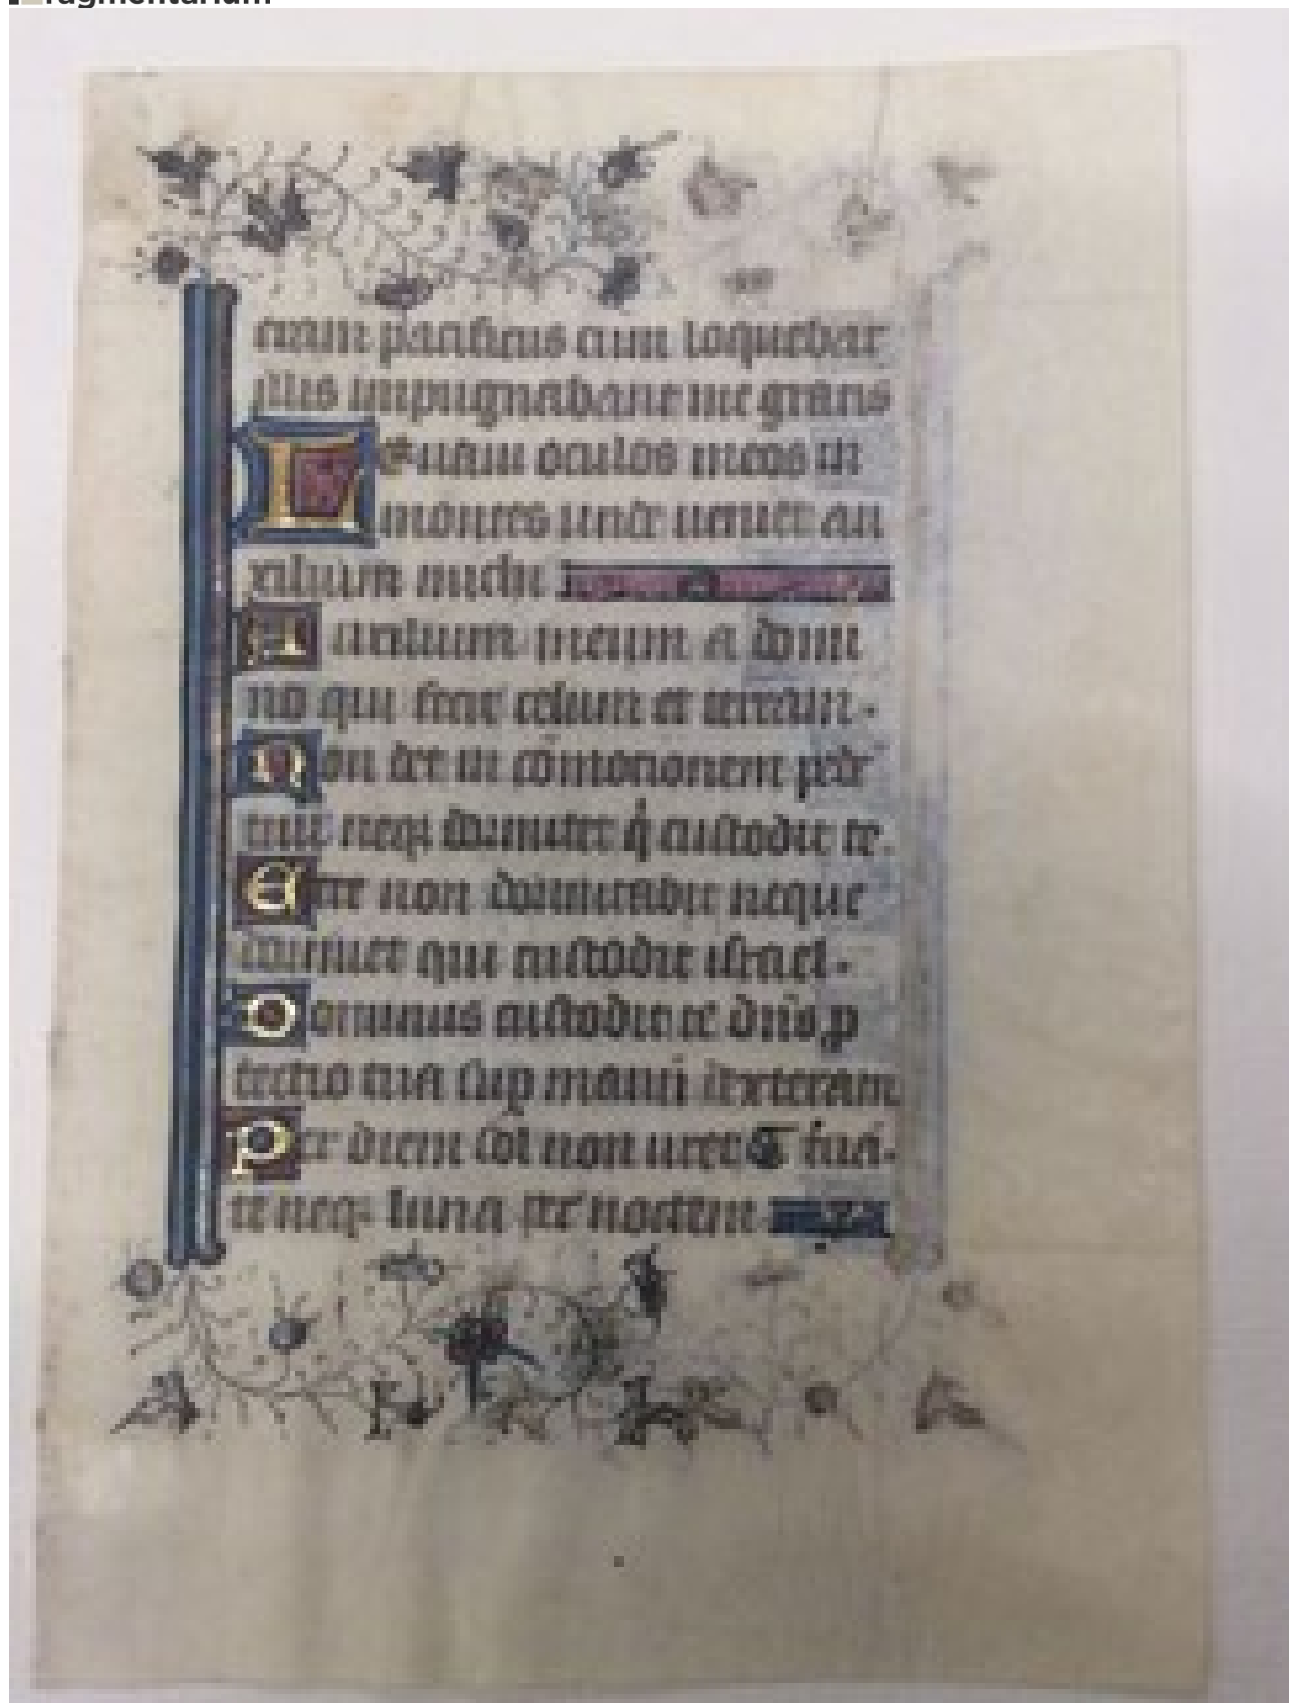 ragmentarium
eram pacificus cum loquebar
illis impugnabant me gratis
Leuaui oculos meos in
montes unde ueniet au
xilium michi
Auxilium meum a domi
no qui fecit celum et terram.
Non det in cōmotionem pedē
tuū neqꝫ dormitet q̇ custodit te.
Ecce non dormitabit neque
dormiet qui custodit israel.
Dominus custodit te dn̄s ꝓ
tectio tua sup manū dexteram
Per diem sol non uret te
te neqꝫ luna per noctem